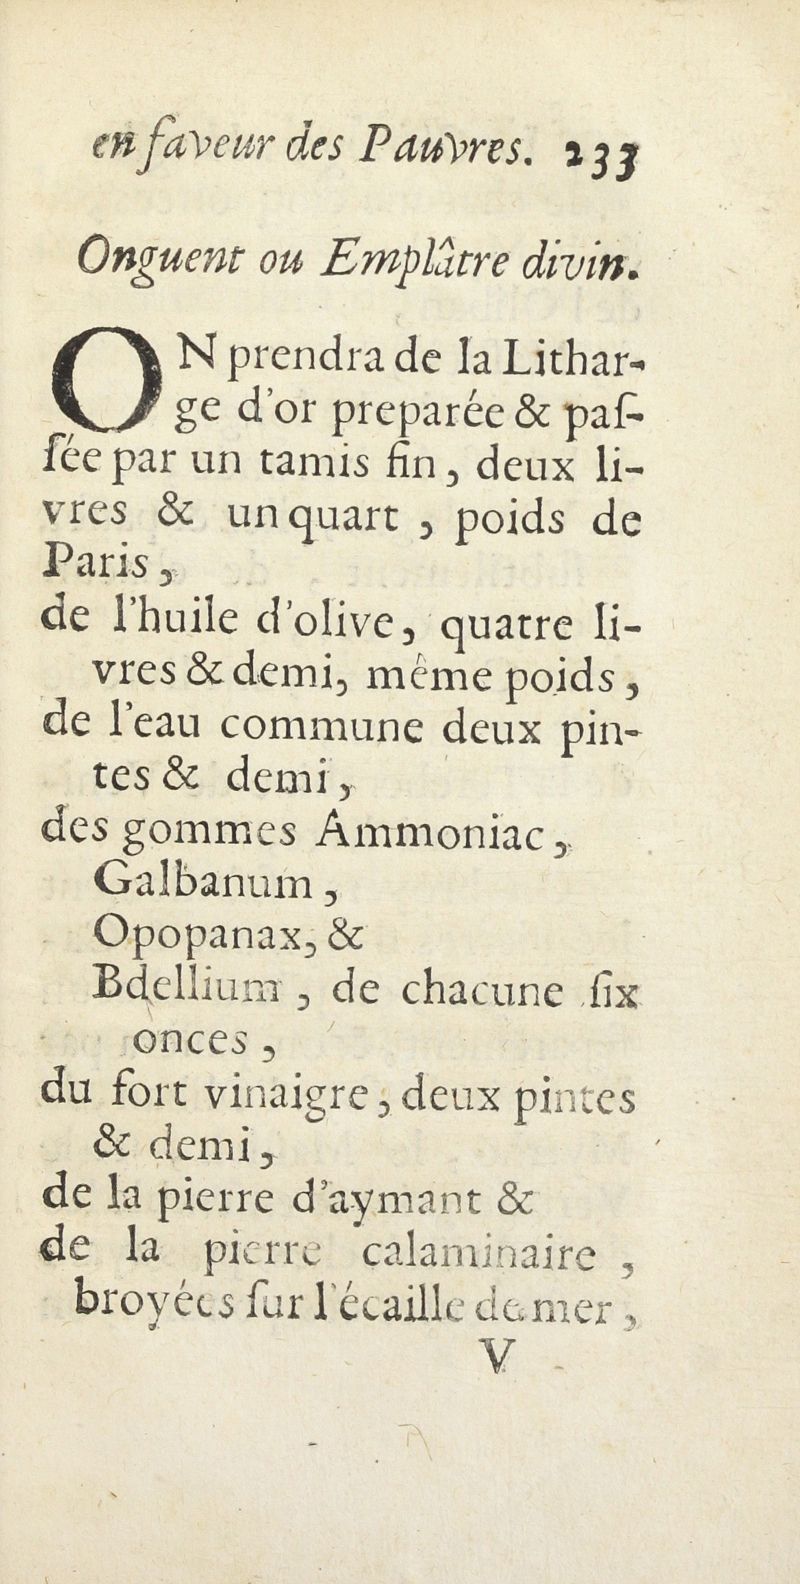 en faveur des Pauvres. 233
Onguent ou Emplâtre divin.
ON prendra de la Lithar-
ge d'or preparée & paſ-
ſée par un tamis fin, deux li-
vres & un quart , poids de
Paris,
de l'huile d'olive, quatre li-
vres & demi, même poids,
de l'eau commune deux pin-
tes & demi,
des gommes Ammoniac,
Galbanum,
Opopanax, &
Bdellium, de chacune ſix
onces,
du fort vinaigre, deux pintes
& demi,
de la pierre d'aymant &
de la pierre calaminaire ,
broyées ſur l'écaille de mer,
V